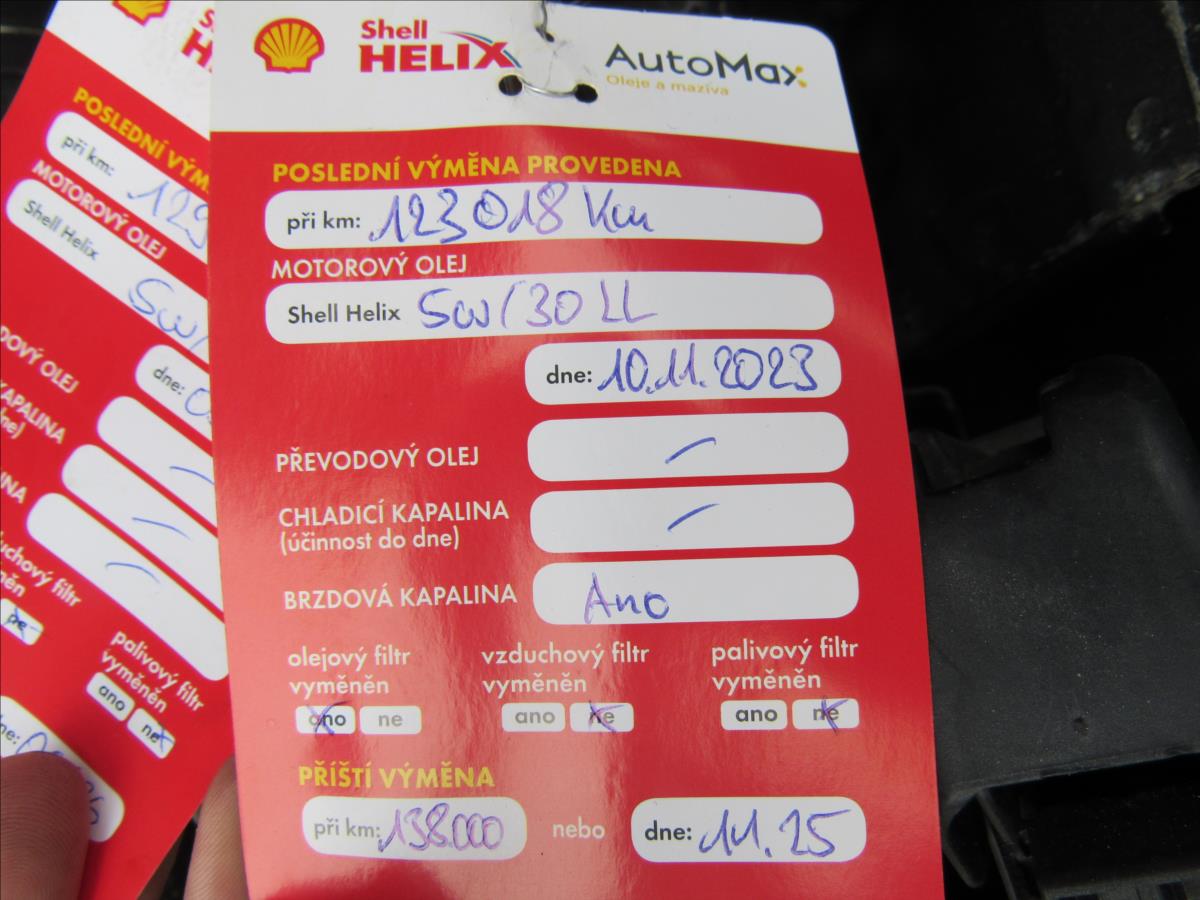 Shell
HELIX
AutoMax
Oleje a maziva
POSLEDNÍ VÝMĚNA PROVEDENA
při km: 123018 Km
MOTOROVÝ OLEJ
Shell Helix 5W/30 LL
dne: 10.11.2023
PŘEVODOVÝ OLEJ –
CHLADICÍ KAPALINA –
(účinnost do dne)
BRZDOVÁ KAPALINA Ano
olejový filtr vyměněn
ano ne
vzduchový filtr vyměněn
ano ne
palivový filtr vyměněn
ano ne
PŘÍŠTÍ VÝMĚNA
při km: 138.000 nebo dne: 11.25
POSLEDNÍ VÝM
při km: 129
MOTOROVÝ OLEJ
Shell Helix 5W/
dne:
DOVÝ OLEJ
KAPALINA
palivový filtr
vyměněn
ano ne